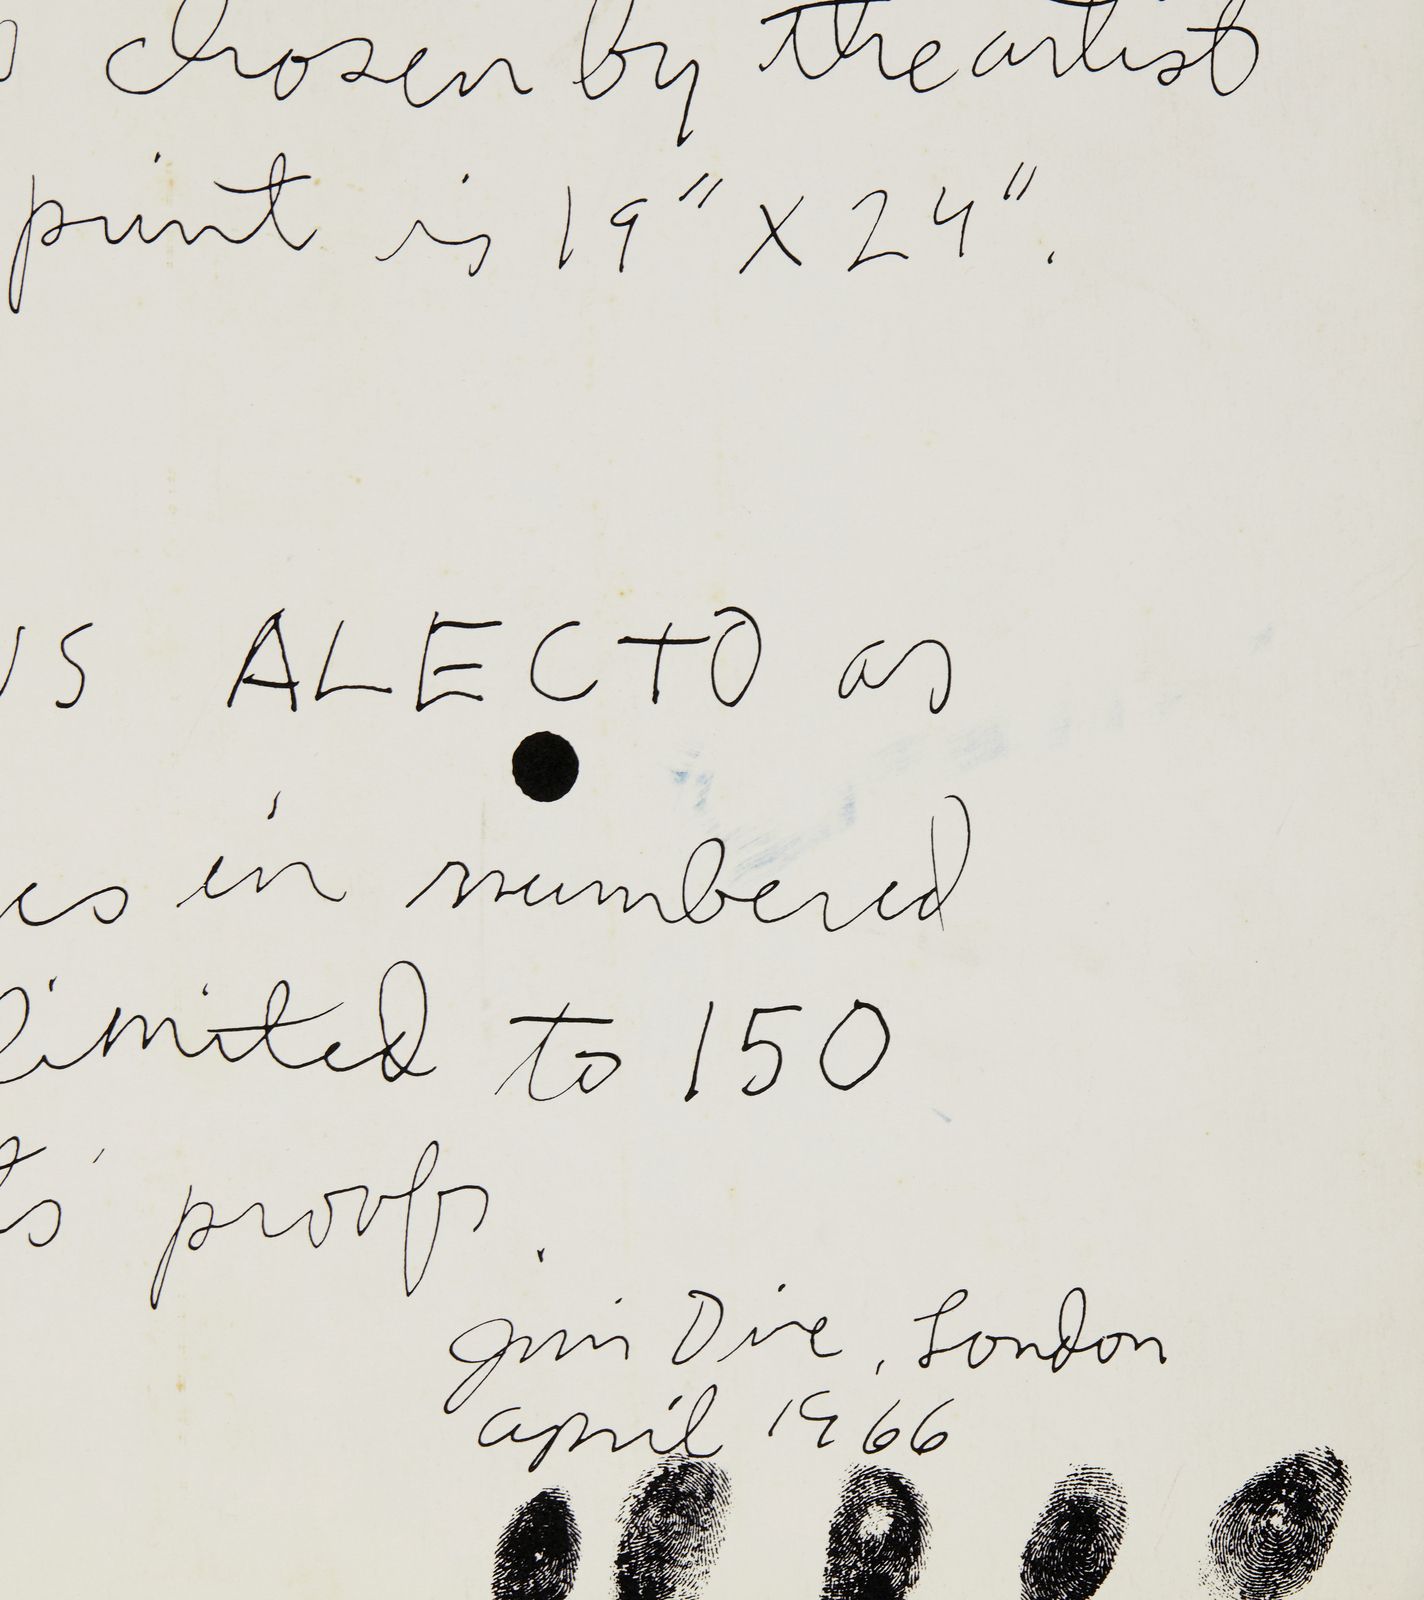 chosen by the artist
print is 19" X 24".
US ALECTO as
in numbered
limited to 150
proofs.
Jim Dine, London
april 1966